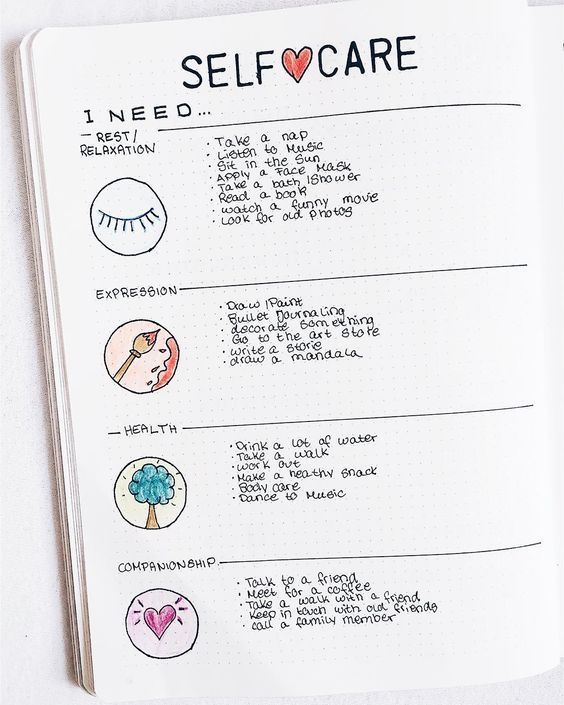 SELF CARE
I NEED...
REST/
RELAXATION
• Take a nap
• Listen to Music
• Sit in the Sun
• Apply a Face Mask
• Take a bath /Shower
• Read a book
• watch a funny movie
• Look for old photos
EXPRESSION
• Draw / Paint
• Bullet Journaling
• decorate something
• Go to the art store
• write a storie
• draw a mandala
HEALTH
• Drink a lot of water
• Take a walk
• work out
• Make a heathy snack
• Body care
• Dance to Music
COMPANIONSHIP
• Talk to a friend
• Meet for a coffee
• Take a walk with a friend
• Keep in touch with old friends
• call a family member